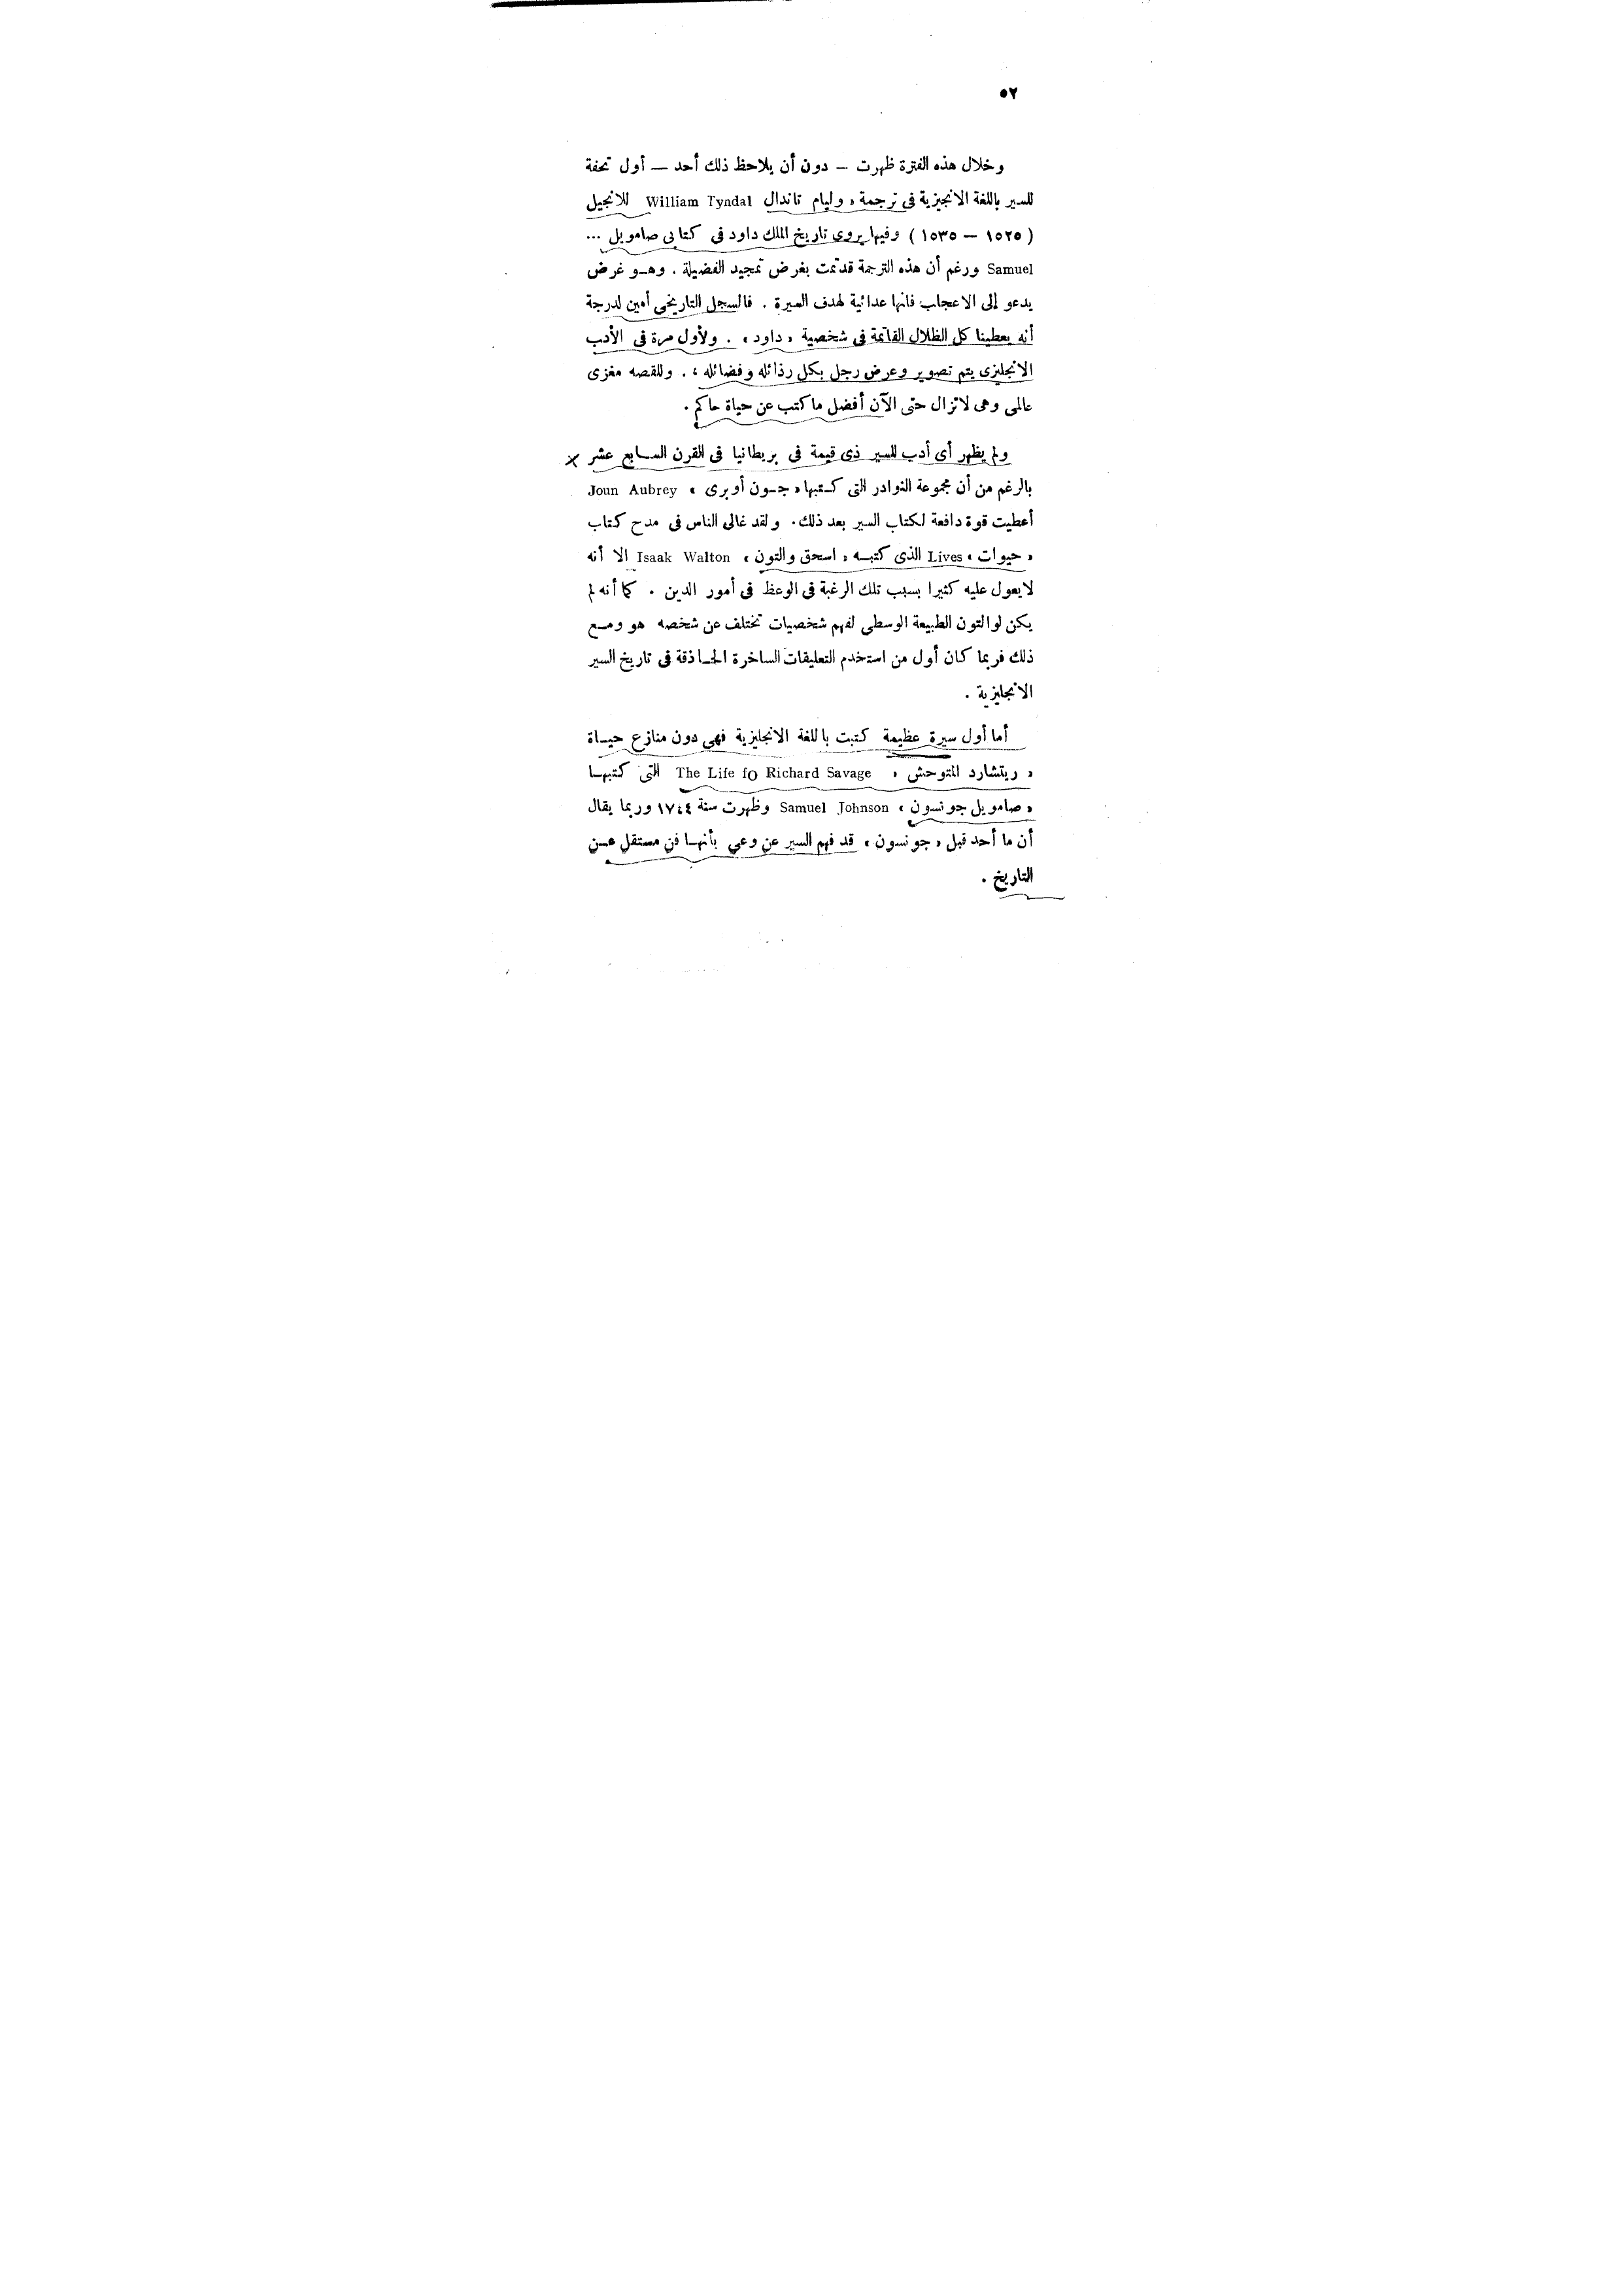 ٥٢
وخلال هذه الفترة ظهرت — دون أن يلاحظ ذلك أحد — أول تحفة
للسير باللغة الانجيزية فى ترجمة « وليام تاندال William Tyndal للانجيل
( ١٥٢٥ — ١٥٣٥ ) وفيها يروى تاريخ الملك داود فى كتابى صامويل ...
Samuel ورغم أن هذه الترجمة قد تمت بغرض تمجيد الفضيلة . وهو غرض
يدعو إلى الاعجاب فانها عدائية لهدف السيرة . فالسجل التاريخى أمين لدرجة
أنه يعطينا كل الظلال القاتمة فى شخصية « داود » . ولأول مرة فى الأدب
الانجليزى يتم تصوير وعرض رجل بكل رذائله وفضائله ، . وللقصه مغزى
عالمى وهى لاتزال حتى الآن أفضل ماكتب عن حياة حاكم .
ولم يظهر أى أدب للسير ذى قيمة فى بريطانيا فى القرن السابع عشر
بالرغم من أن مجموعة النوادر التى كتبها « جون أوبرى » Joun Aubrey
أعطيت قوة دافعة لكتاب السير بعد ذلك . ولقد غالى الناس فى مدح كتاب
« حيوات » Lives الذى كتبه « اسحق والتون » Isaak Walton الا أنه
لايعول عليه كثيرا بسبب تلك الرغبة فى الوعظ فى أمور الدين . كما أنه لم
يكن لوالتون الطبيعة الوسطى لفهم شخصيات تختلف عن شخصه هو ومع
ذلك فربما كان أول من استخدم التعليقات الساخرة الحاذقة فى تاريخ السير
الانجليزية .
أما أول سيرة عظيمة كتبت باللغة الانجليزية فهى دون منازع حياة
« ريتشارد المتوحش » The Life fo Richard Savage التى كتبها
« صامويل جونسون » Samuel Johnson وظهرت سنة ١٧٤٤ وربما يقال
أن ما أحد قبل « جونسون » قد فهم السير عن وعى بأنها فن مستقل عن
التاريخ .